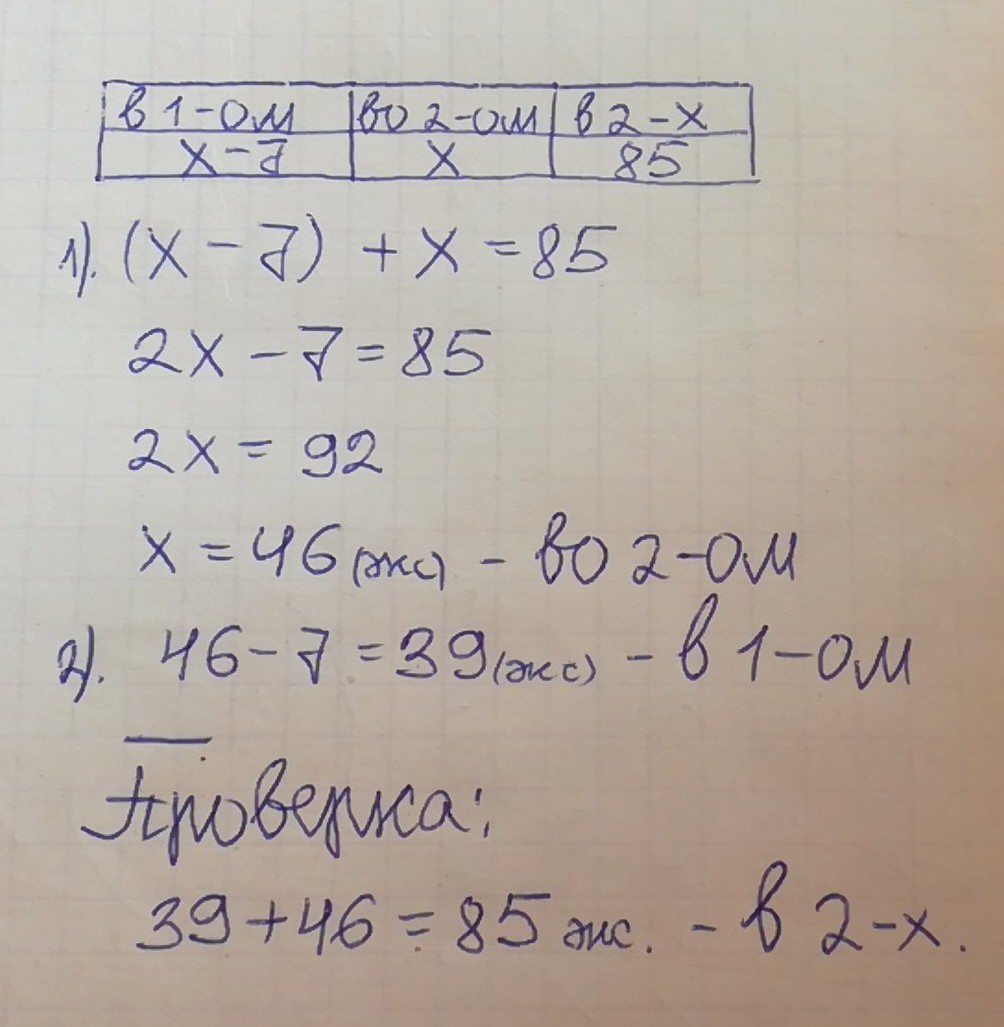 в 1-ом во 2-ом в 2-х
х-7 х 85
1). (х - 7) + х = 85
2х - 7 = 85
2х = 92
х = 46 (экс) - во 2-ом
2). 46 - 7 = 39 (экс) - в 1-ом
Проверка:
39 + 46 = 85 экс. - в 2-х.